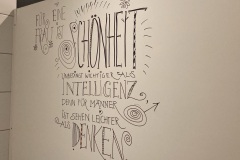 FÜR EINE
FRAU IST
SCHÖNHEIT
UNBEDINGT WICHTIGER ALS
INTELLIGENZ,
DENN FÜR MÄNNER
IST SEHEN LEICHTER
ALS DENKEN